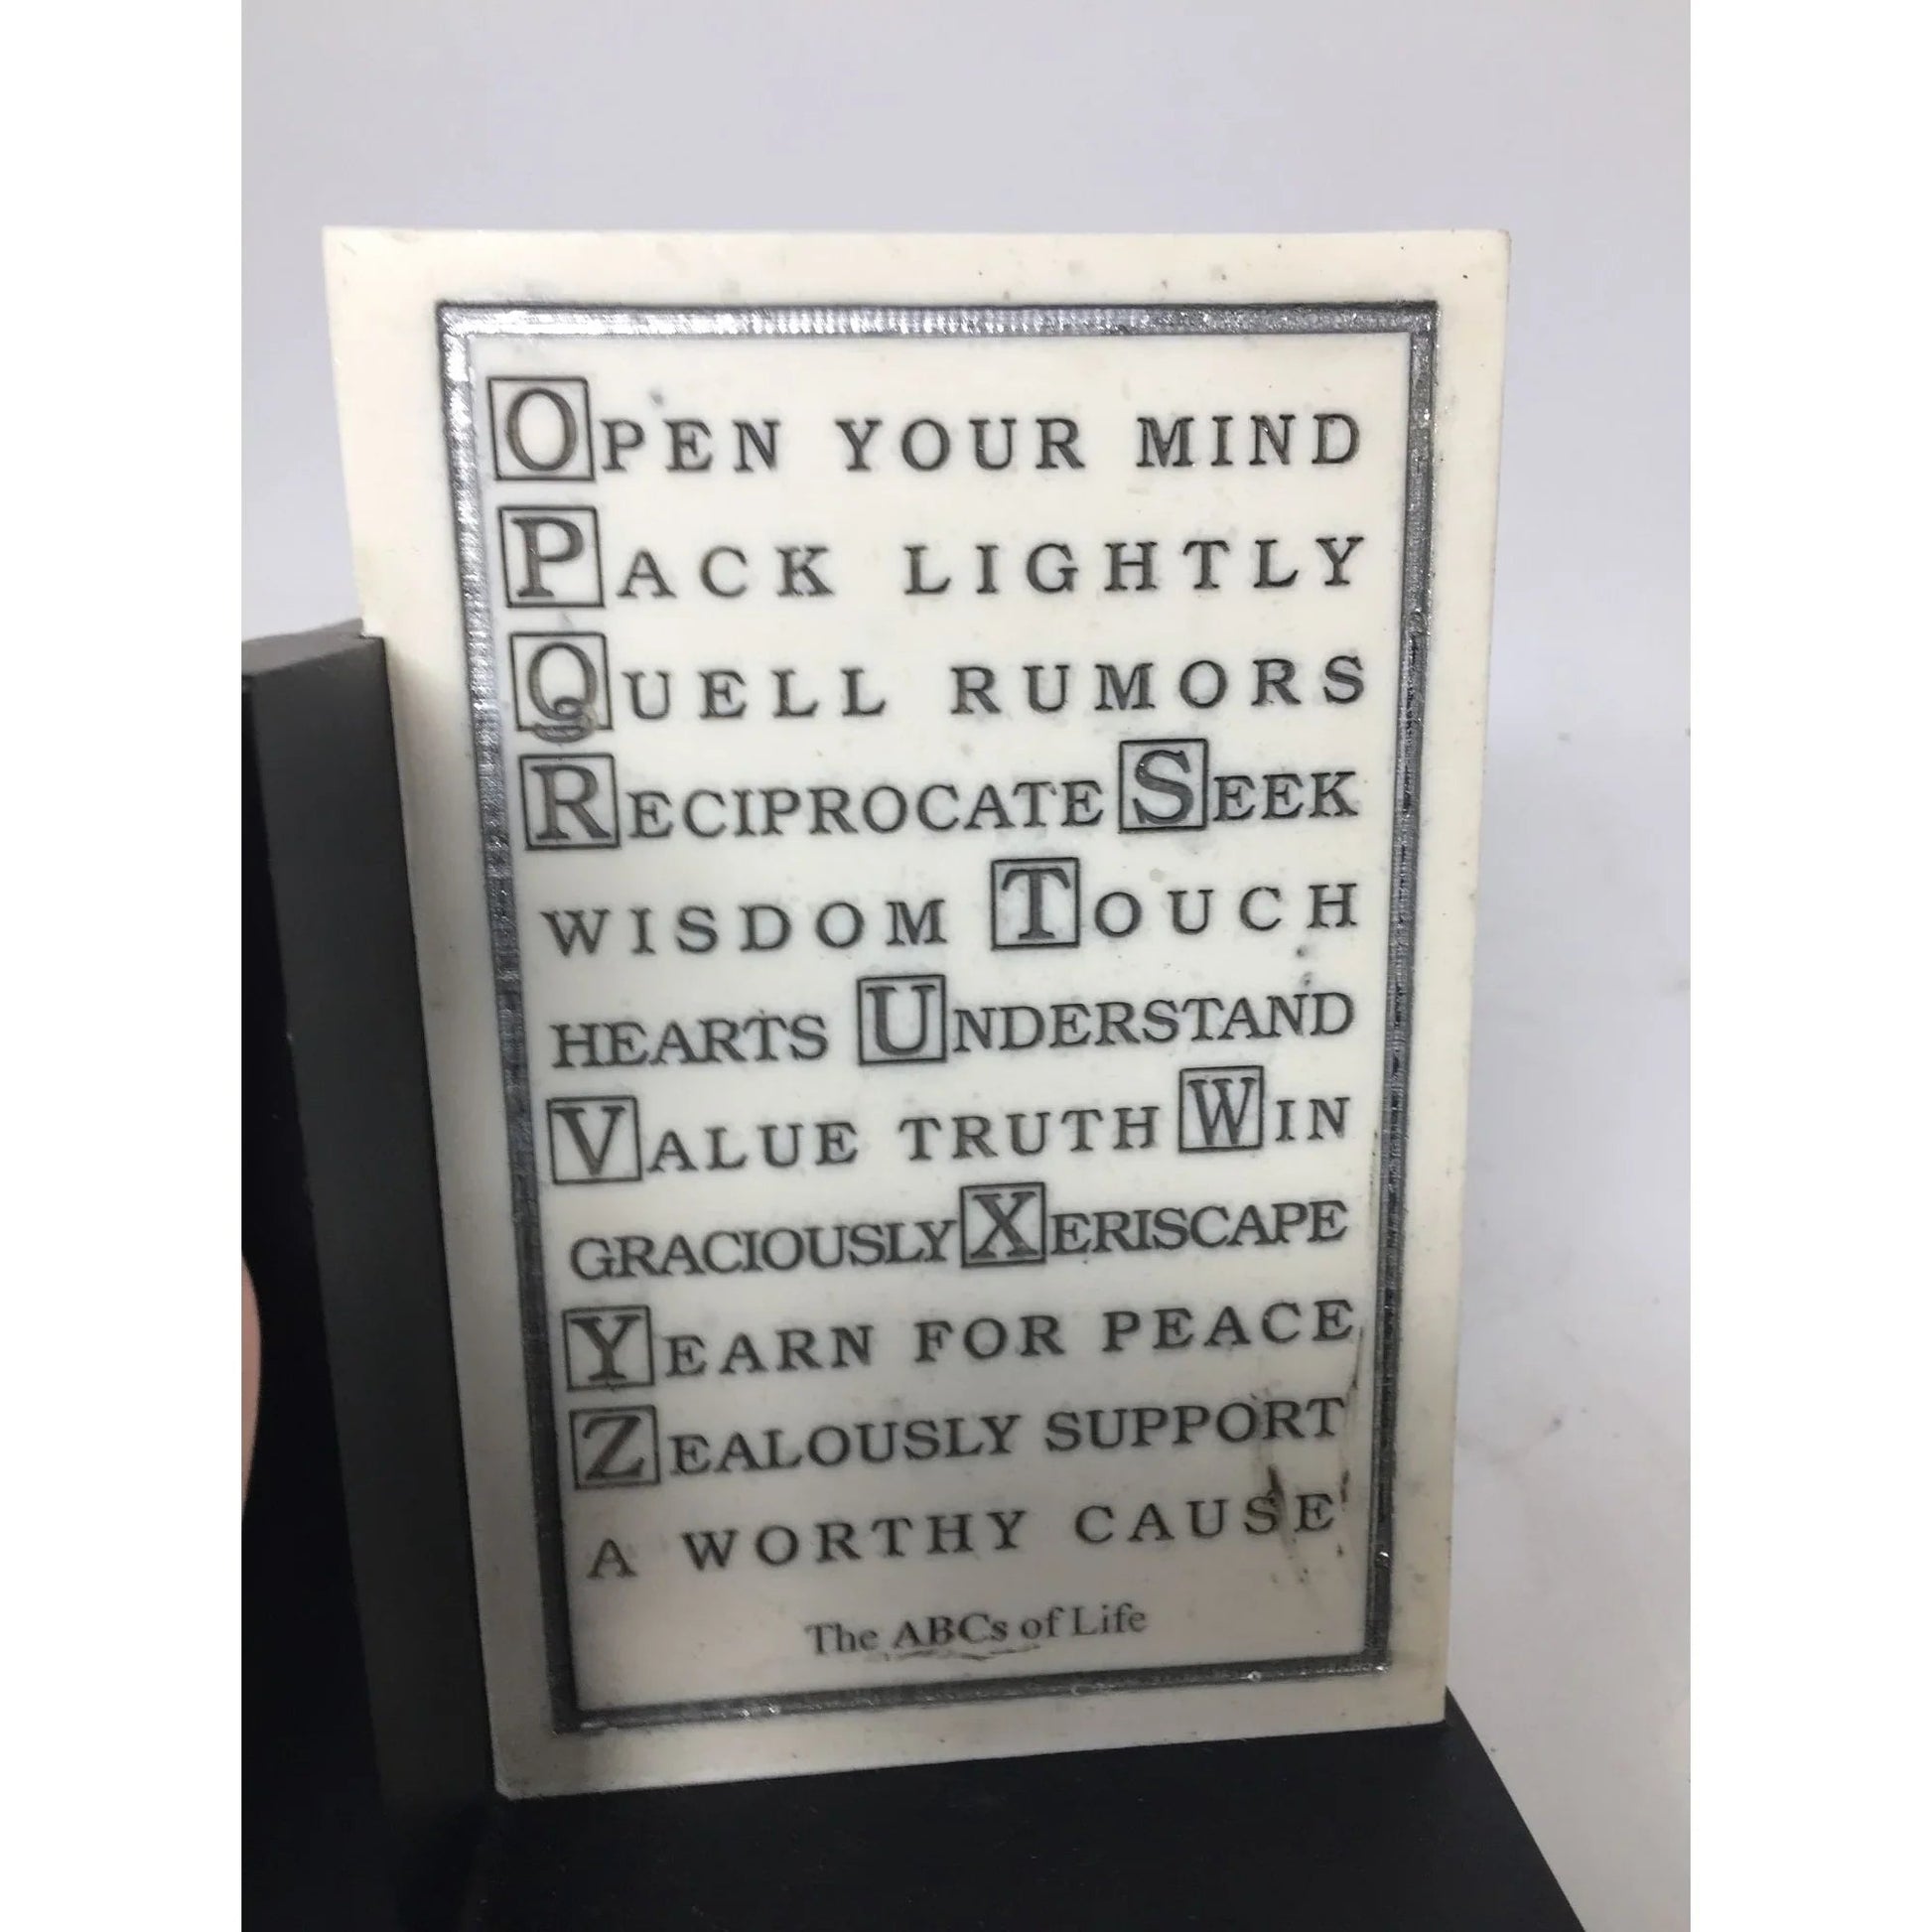 OPEN YOUR MIND
PACK LIGHTLY
QUELL RUMORS
RECIPROCATE SEEK
WISDOM TOUCH
HEARTS UNDERSTAND
VALUE TRUTH WIN
GRACIOUSLY XERISCAPE
YEARN FOR PEACE
ZEALOUSLY SUPPORT
A WORTHY CAUSE
The ABCs of Life